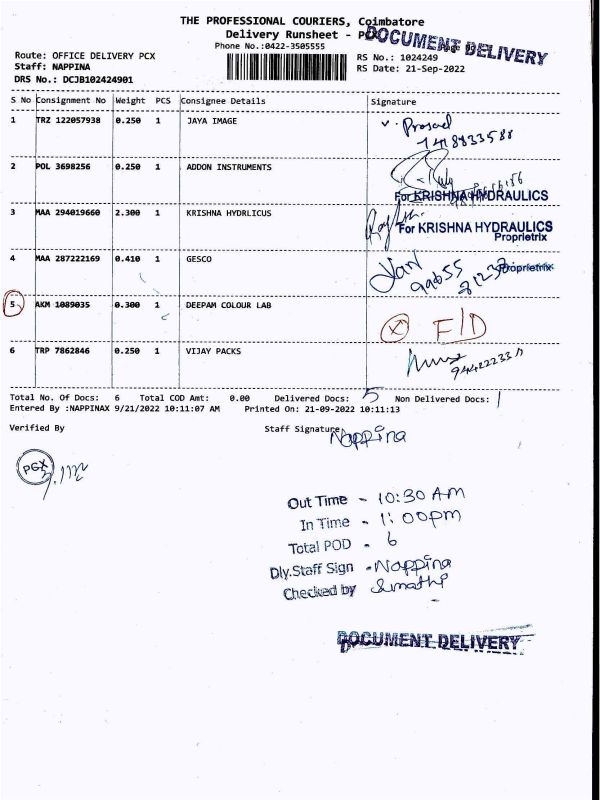 THE PROFESSIONAL COURIERS, Coimbatore
Delivery Runsheet - PCX
DOCUMENT DELIVERY
Phone No.:0422-3505555
Page No
Route: OFFICE DELIVERY PCX
RS No.: 1024249
Staff: NAPPINA
RS Date: 21-Sep-2022
DRS No.: DCJB102424901
S No Consignment No Weight PCS Consignee Details Signature
1 TRZ 122057938 0.250 1 JAYA IMAGE
Prasad
2 POL 3698256 0.250 1 ADDON INSTRUMENTS
For KRISHNA HYDRAULICS
3 MAA 294019660 2.300 1 KRISHNA HYDRLICUS
For KRISHNA HYDRAULICS
Proprietrix
4 MAA 287222169 0.410 1 GESCO
Proprietrix
5 AKM 1089035 0.300 1 DEEPAM COLOUR LAB
X F/D
6 TRP 7862846 0.250 1 VIJAY PACKS
Total No. Of Docs: 6 Total COD Amt: 0.00 Delivered Docs: 5 Non Delivered Docs: 1
Entered By :NAPPINAX 9/21/2022 10:11:07 AM Printed On: 21-09-2022 10:11:13
Verified By Staff Signature Nappina
PGX
Out Time - 10:30 AM
In Time - 1:00pm
Total POD - 6
Dly.Staff Sign - Nappina
Checked by Sumathi
DOCUMENT DELIVERY